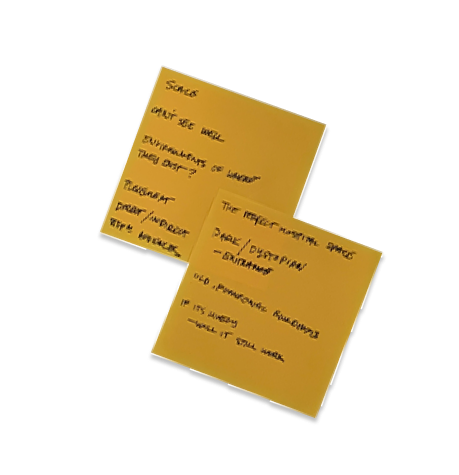 SCALE
CAN'T SEE WELL
ENVIRONMENTS OF WHERE
THEY EXIST - ?
PLACEMENT
DIRECT / INDIRECT
THE PERFECT HOSPITAL SPACE
DARK / DYSTOPIAN
- ENTRANCE
OLD, BUILDINGS
IF ITS
- WILL IT STILL WORK